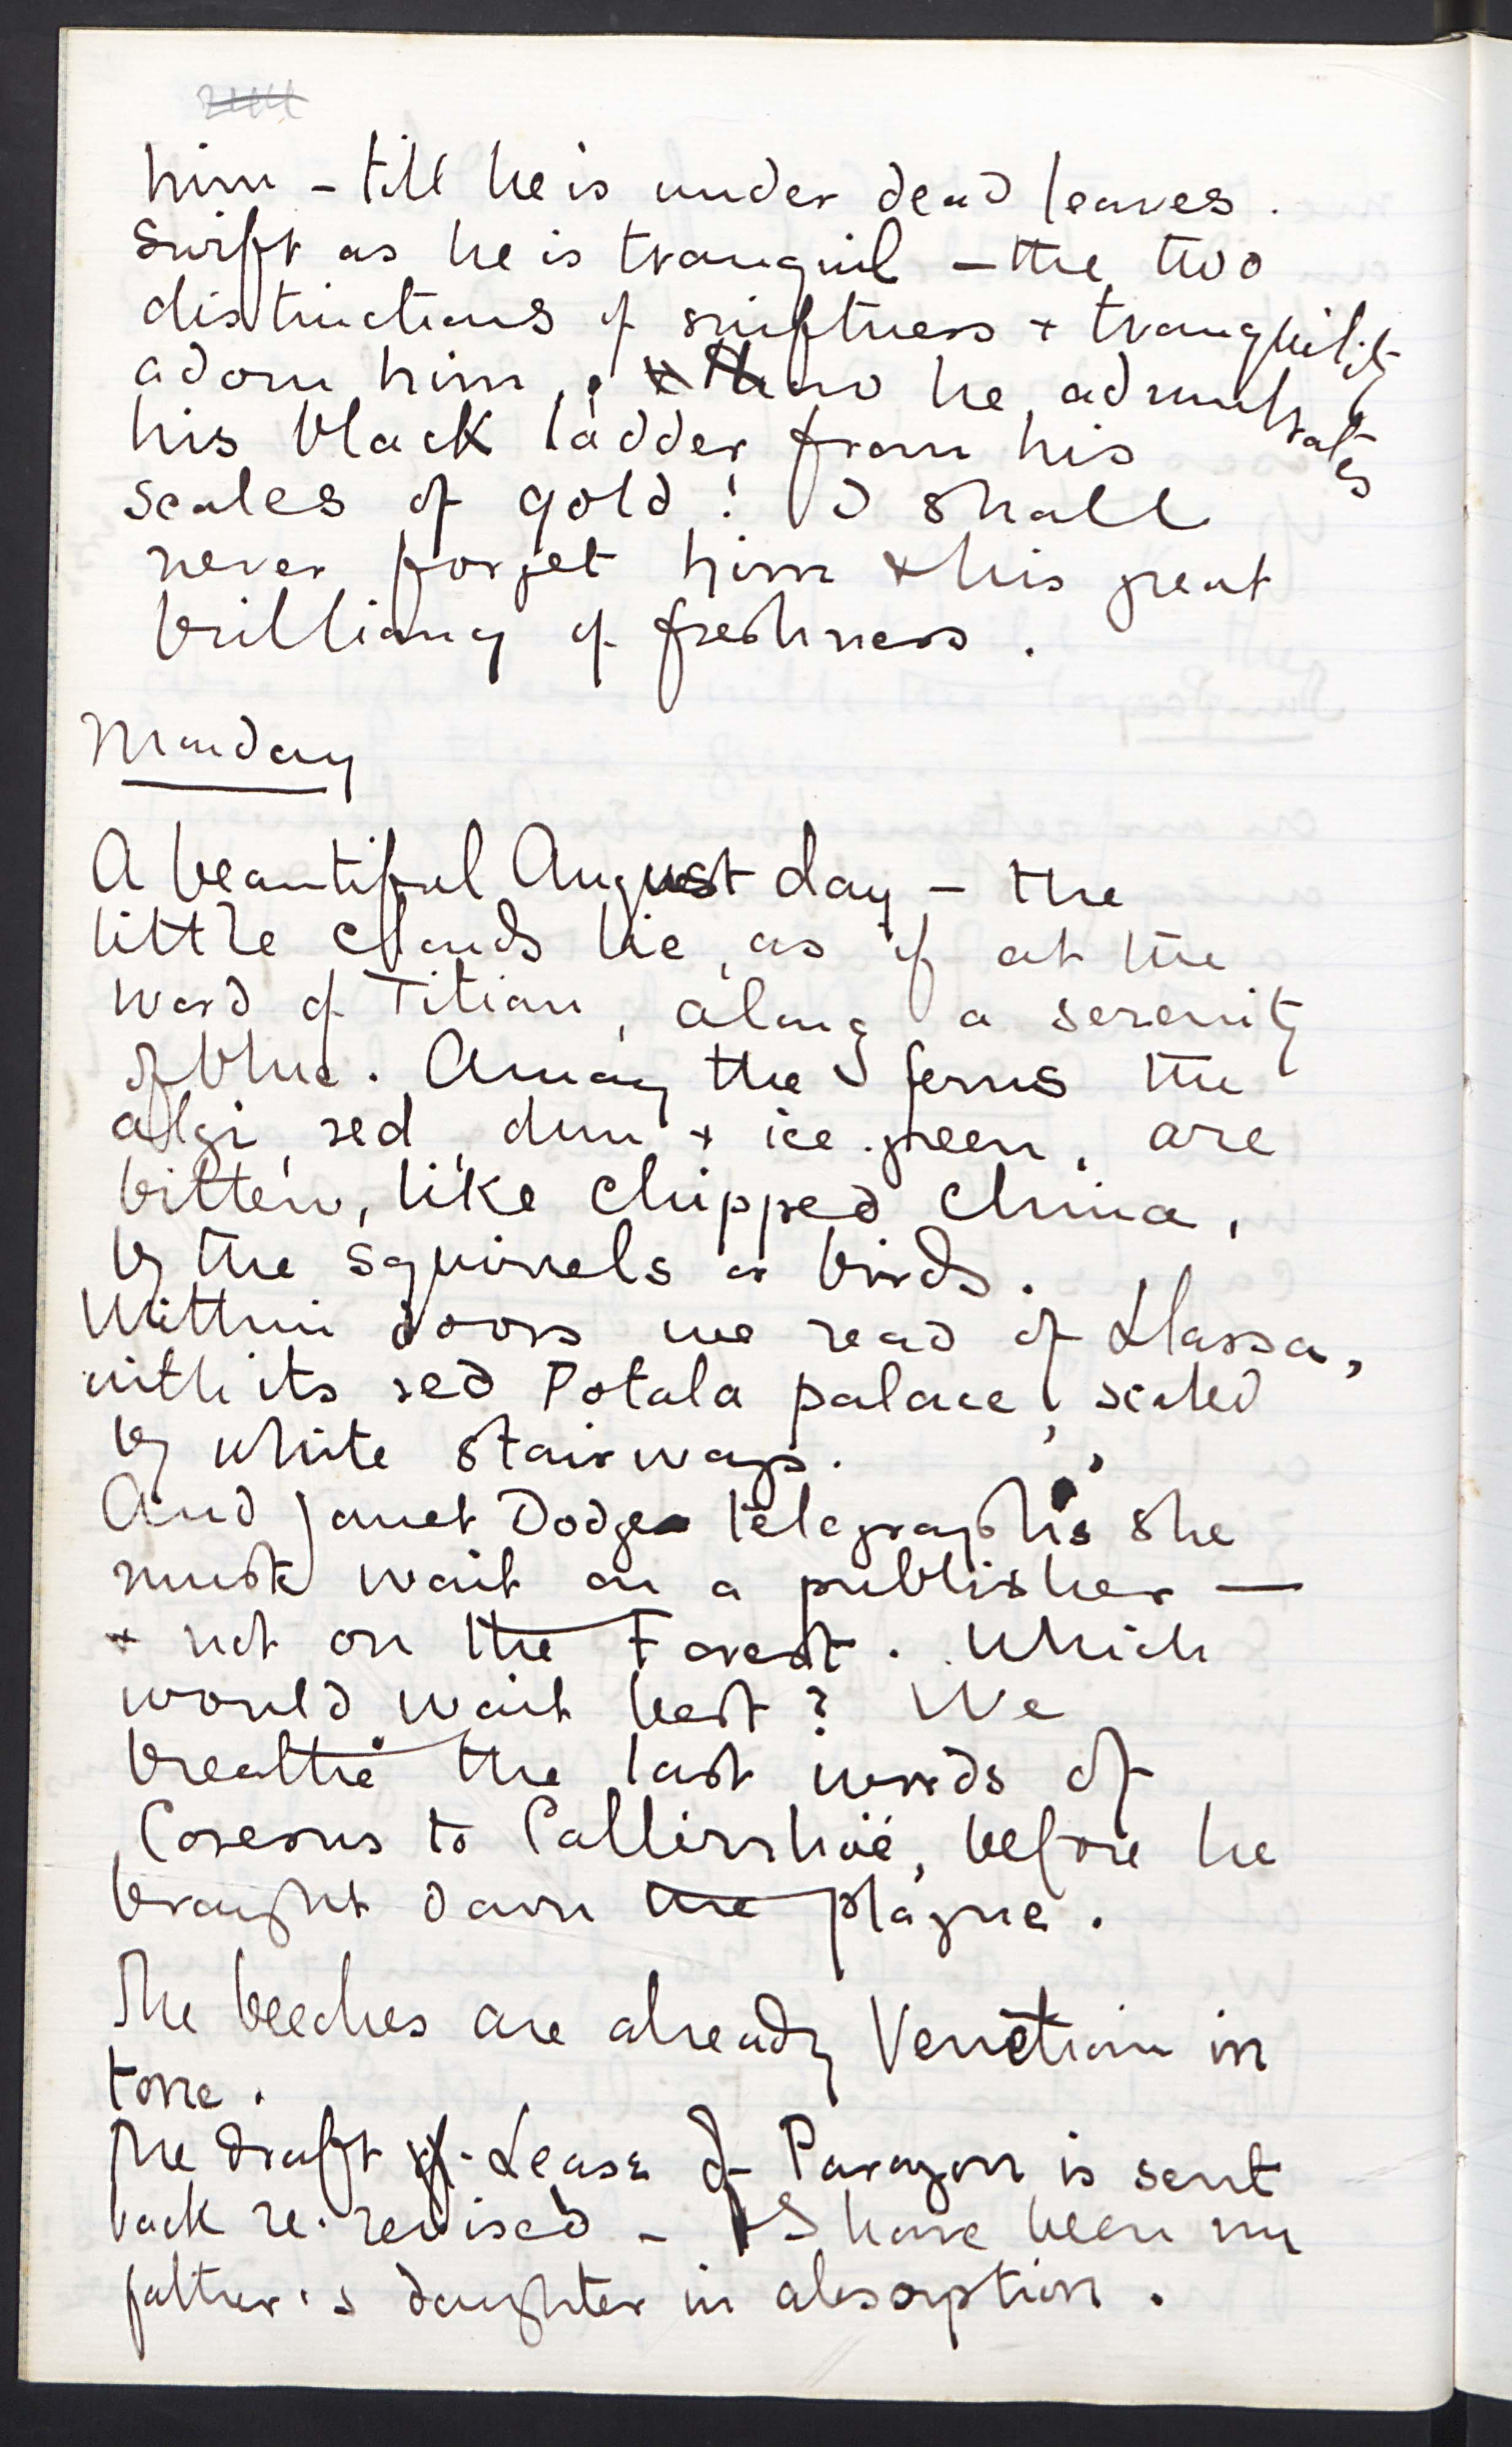 him – till he is under dead leaves.
Swift as he is tranquil – the two
distinctions of swiftness + tranquility
adorn him. How he adumbrates
his black ladder from his
scales of gold! I shall
never forget him + his great
brilliancy of freshness.
Monday
A beautiful August day – the
little clouds lie, as if at the
word of Titian, along a serenity
of blue. Among the ferns the
algi, red, dun + ice-green, are
bitten, like chipped china,
by the squirrels or birds.
Within doors we read of Llassa,
with its red Potala palace, scaled
by white stairways.
And Janet Dodge telegraphs she
must wait on a publisher —
+ not on the Forest. Which
would wait best? We
breathe the last words of
Coresus to Callirrhoë, before he
brought down the plague.
The beeches are already Venetian in
tone.
The draft of Lease of Paragon is sent
back re-revised – I have been my
father's daughter in absorption.